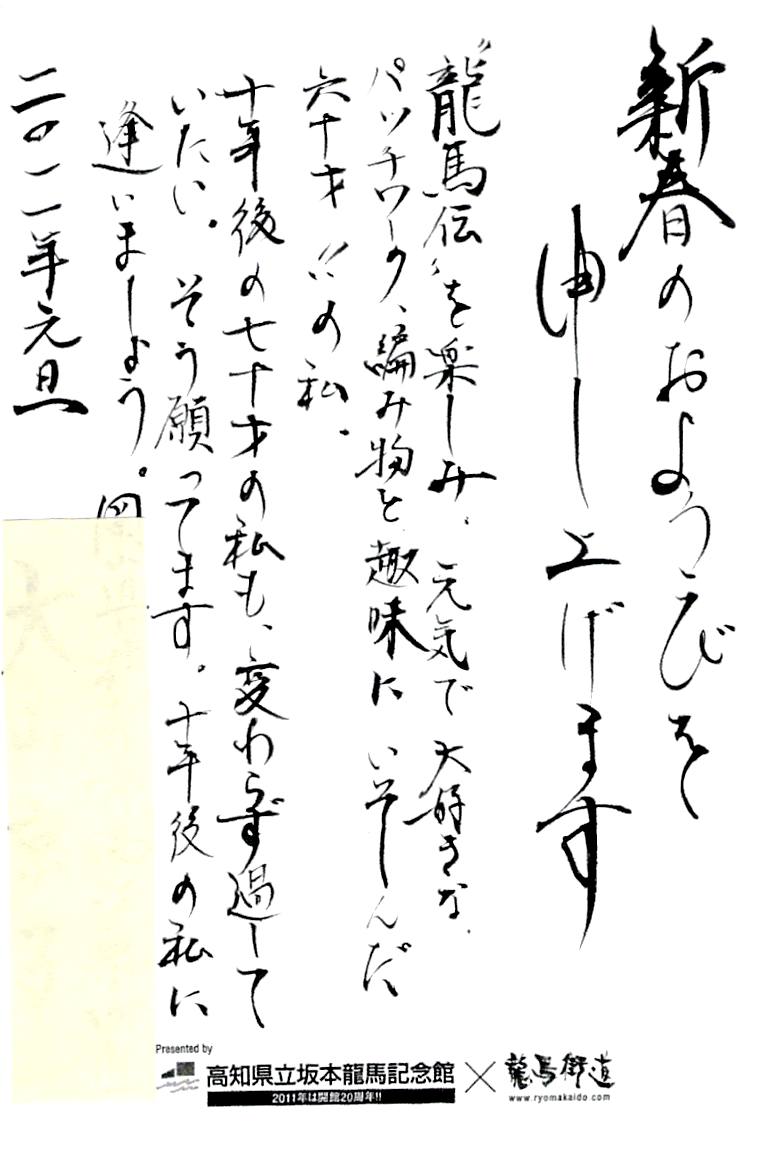 新春のおよろこびを
申し上げます
“龍馬伝”を楽しみ、元気で大好きな、
パッチワーク、編み物と趣味にいそしんだ
六十才!!の私。
十年後の七十才の私も、変わらず過して
いたい。そう願ってます。十年後の私に
逢いましょう。
二〇一一年元旦
Presented by
高知県立坂本龍馬記念館×龍馬街道
2011年は開館20周年!!
www.ryomakaido.com